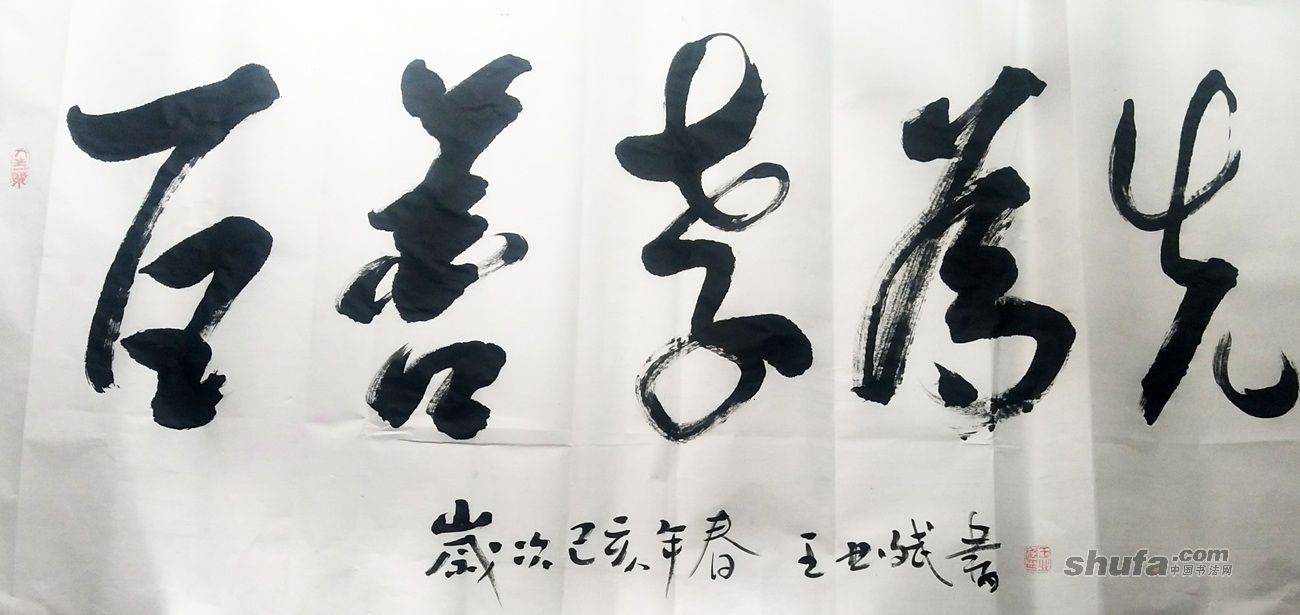 百善孝為先
歲次己亥年春 王世斌書
shufa.com
中国书法网